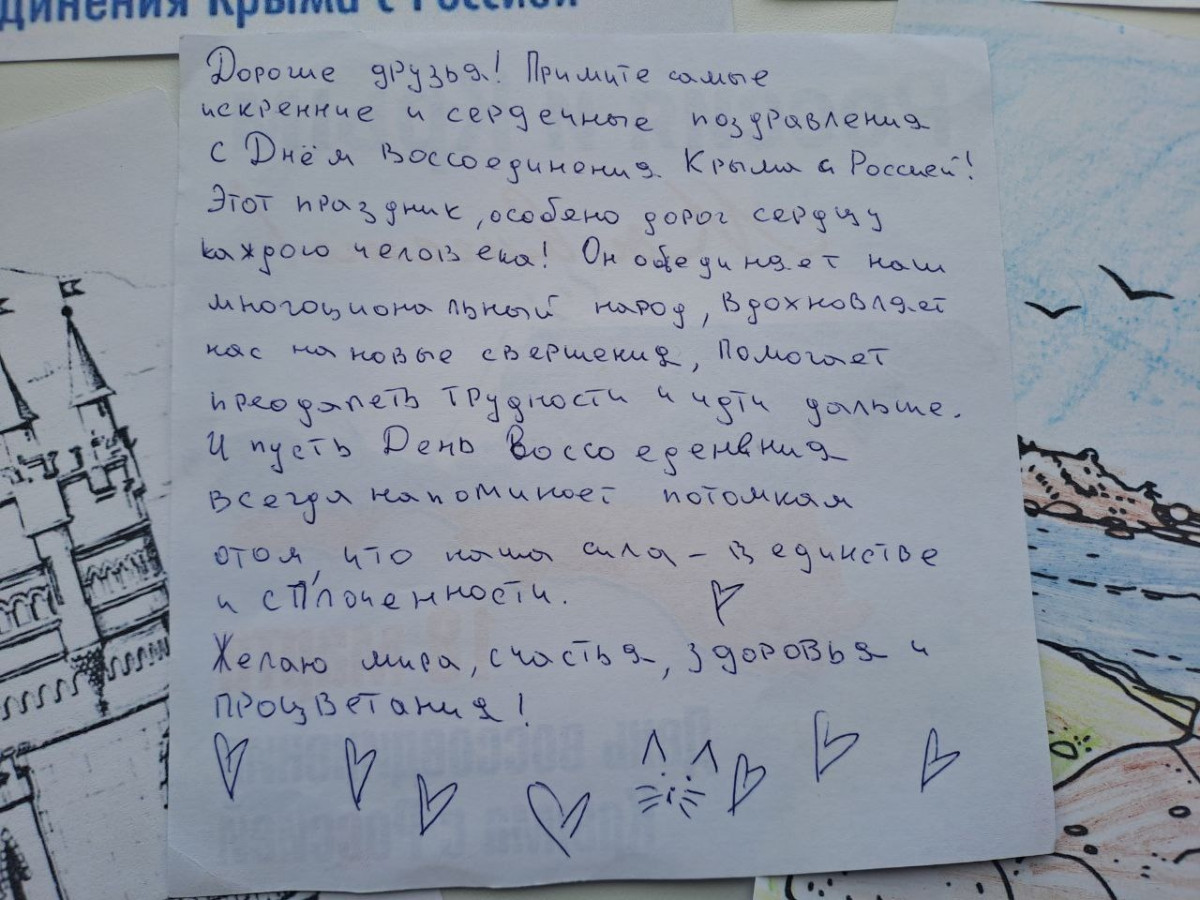 динения Крыма с Россией
Дорогие друзья! Примите самые
искренние и сердечные поздравления
с Днём Воссоединения Крыма с Россией!
Этот праздник, особено дорог сердцу
каждого человека! Он обединяет наш
многоциональный народ, вдохновляет
нас на новые свершения, помогает
преодалеть трудности и идти дальше.
И пусть День Воссоеденения
всегда напоминает потомкам
отом, что наша сила – в единстве
и сплоченности.
Желаю мира, счастья, здоровья и
процветания!
День воссоединения
Крыма с Россией